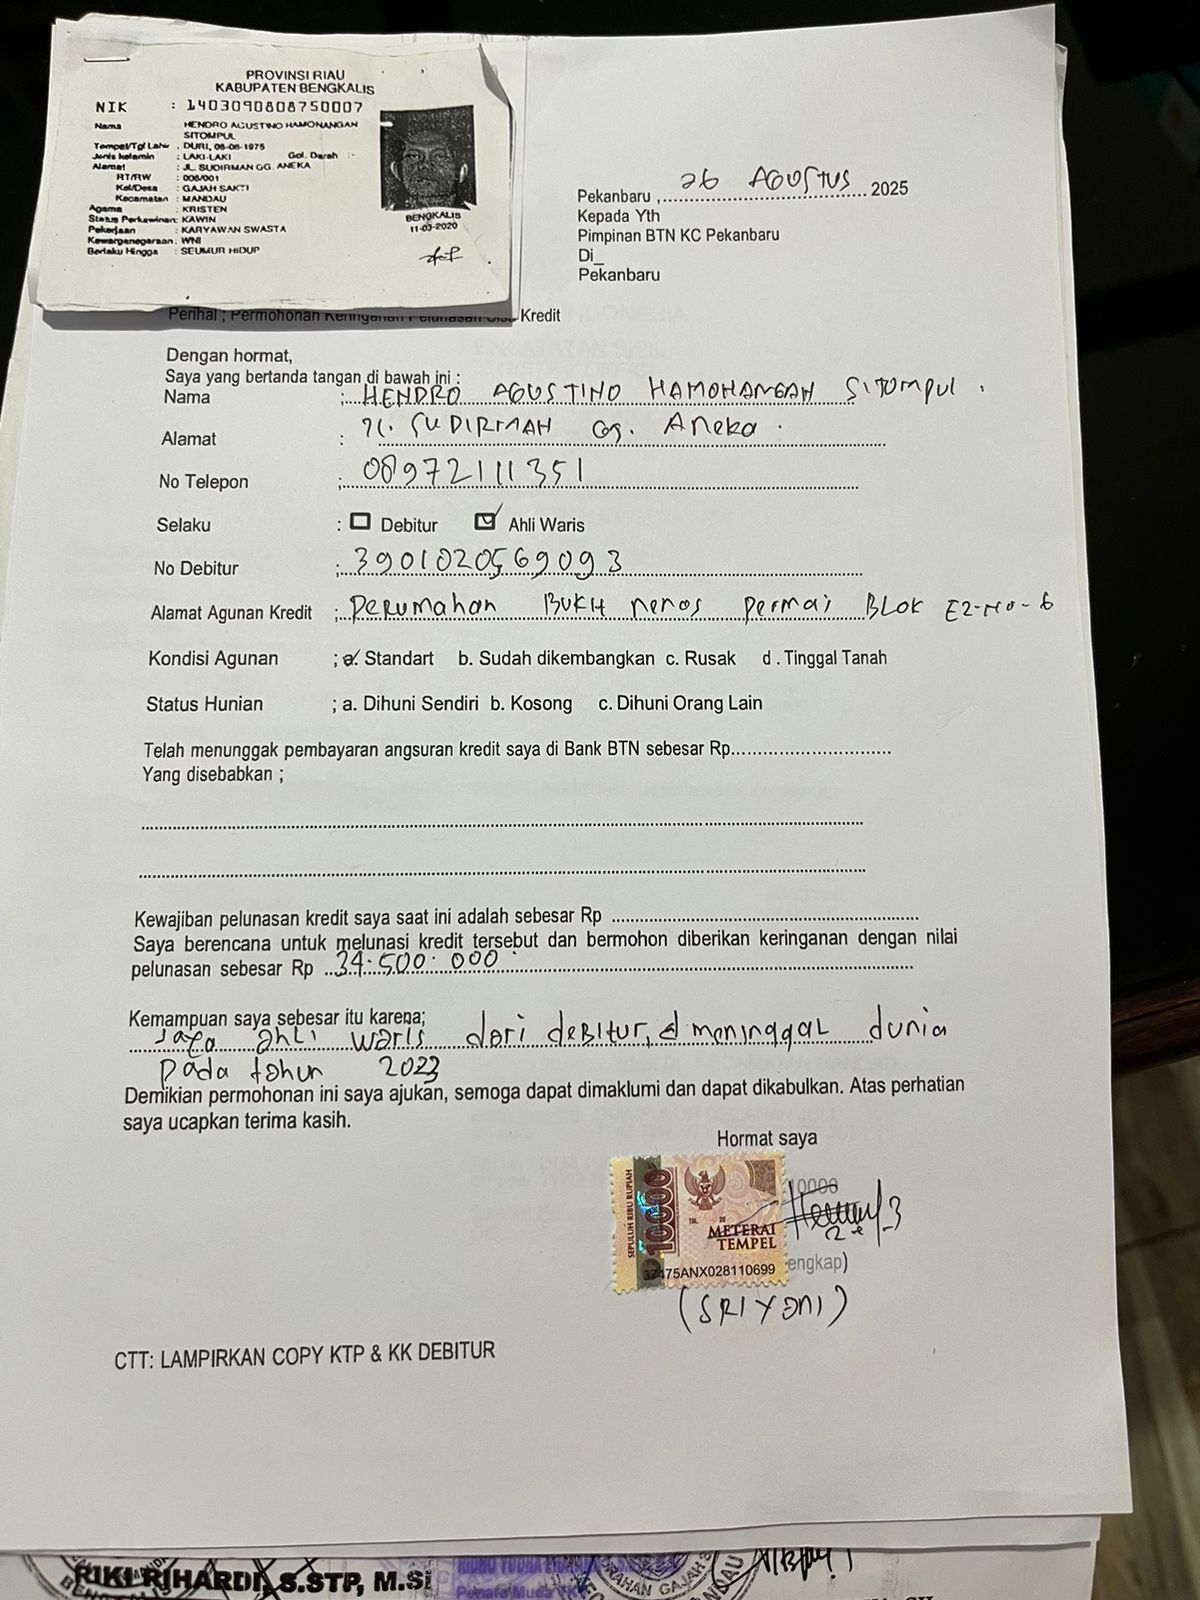 PROVINSI RIAU
KABUPATEN BENGKALIS
NIK : 1403090808750007
Nama : HENDRO AGUSTINO HAMONANGAN
SITOMPUL
Tempat/Tgl Lahir : DURI, 08-08-1975
Jenis kelamin : LAKI-LAKI Gol. Darah : -
Alamat : JL. SUDIRMAN GG. ANEKA
RT/RW : 006/001
Kel/Desa : GAJAH SAKTI
Kecamatan : MANDAU
Agama : KRISTEN
Status Perkawinan: KAWIN
Pekerjaan : KARYAWAN SWASTA
Kewarganegaraan: WNI
Berlaku Hingga : SEUMUR HIDUP
BENGKALIS
11-03-2020
Pekanbaru, 26 AGUSTUS 2025
Kepada Yth
Pimpinan BTN KC Pekanbaru
Di_
Pekanbaru
Perihal ; Permohonan Keringanan Pelunasan Sisa Kredit
Dengan hormat,
Saya yang bertanda tangan di bawah ini :
Nama : HENDRO AGUSTINO HAMONANGAN SITOMPUL .
Alamat : Jl. SUDIRMAN Gg. Aneka .
No Telepon : 08972111351
Selaku : Debitur Ahli Waris
No Debitur : 3901020569093
Alamat Agunan Kredit : Perumahan BUKIT nenos permai BLOK E2-NO-6
Kondisi Agunan ; a. Standart b. Sudah dikembangkan c. Rusak d . Tinggal Tanah
Status Hunian ; a. Dihuni Sendiri b. Kosong c. Dihuni Orang Lain
Telah menunggak pembayaran angsuran kredit saya di Bank BTN sebesar Rp..............................
Yang disebabkan ;
Kewajiban pelunasan kredit saya saat ini adalah sebesar Rp ..............................
Saya berencana untuk melunasi kredit tersebut dan bermohon diberikan keringanan dengan nilai
pelunasan sebesar Rp 34.500.000
Kemampuan saya sebesar itu karena;
saya ahli waris dari debitur, meninggal dunia
pada tahun 2023
Demikian permohonan ini saya ajukan, semoga dapat dimaklumi dan dapat dikabulkan. Atas perhatian
saya ucapkan terima kasih.
Hormat saya
SEPULUH RIBU RUPIAH
10000
TBL. 20
METERAI
TEMPEL
37475ANX028110699
10000
engkap)
(SRIYONI)
CTT: LAMPIRKAN COPY KTP & KK DEBITUR
RIKI RIHARDI, S.STP, M.Si
Penata Muda